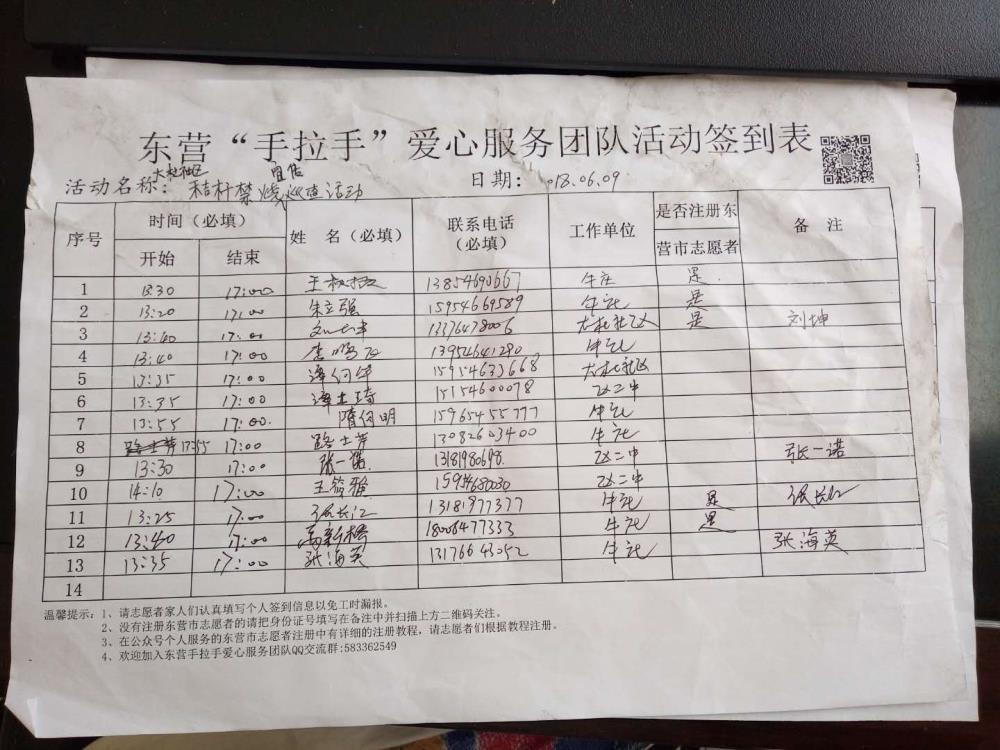 东营“手拉手”爱心服务团队活动签到表
宣传
活动名称: 秸秆禁烧巡查活动 日期: 018.06.09
序号 时间(必填) 姓 名(必填) 联系电话(必填) 工作单位 是否注册东营市志愿者 备 注
开始 结束
1 13:30 17:00 13854690667 牛庄 是
2 13:20 17:00 朱立强 15954669589 牛庄 是
3 13:40 17:00 13376478006 大杜社区 是 刘坤
4 13:40 17:00 13954641290 牛庄
5 13:35 17:00 15914633668 大杜社区
6 13:35 17:00 15154600078 二中
7 13:55 17:00 隋何明 15965455777 牛庄
8 17:00 路士芳 13082603400 牛庄
9 13:30 17:00 张一诺 13181980698 二中 张一诺
10 14:10 17:00 二中
11 13:25 17:00 张长江 13181977377 牛庄 是 张长江
12 13:40 17:00 18006477333 牛庄 是
13 13:35 17:00 张海英 13176643052 牛庄 张海英
14
温馨提示: 1、请志愿者家人们认真填写个人签到信息以免工时漏报。
2、没有注册东营市志愿者的请把身份证号填写在备注中并扫描上方二维码关注。
3、在公众号个人服务的东营市志愿者注册中有详细的注册教程，请志愿者们根据教程注册。
4、欢迎加入东营手拉手爱心服务团队QQ交流群:583362549